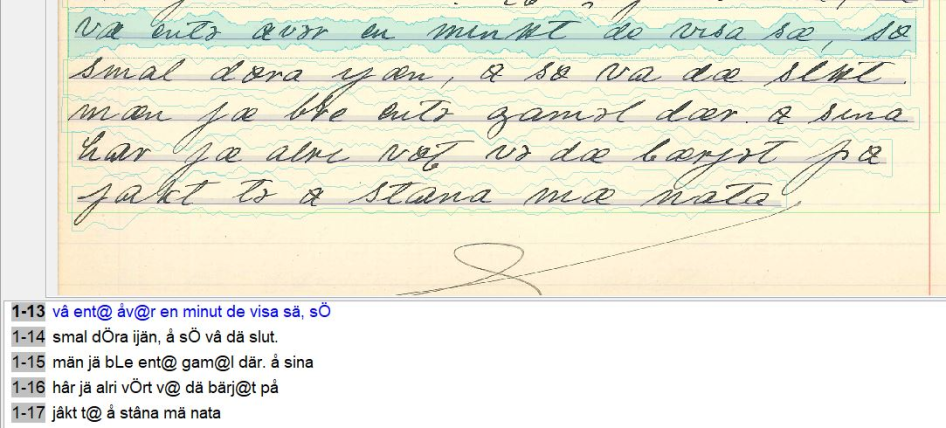 va ento avər en minut de visa sæ, sœ
smal dœra ijæn, a sœ va dæ slut.
mæn jæ ble entə gaməl dær. a sina
har jæ alri vœt və dæ bærjət pa
jakt tə a stana mæ nata
1-13 vâ ent@ åv@r en minut de visa sä, sÖ
1-14 smal dÖra ijän, å sÖ vâ dä slut.
1-15 män jä bLe ent@ gam@l där. å sina
1-16 hâr jä alri vÖrt v@ dä bärj@t på
1-17 jâkt t@ å stâna mä nata